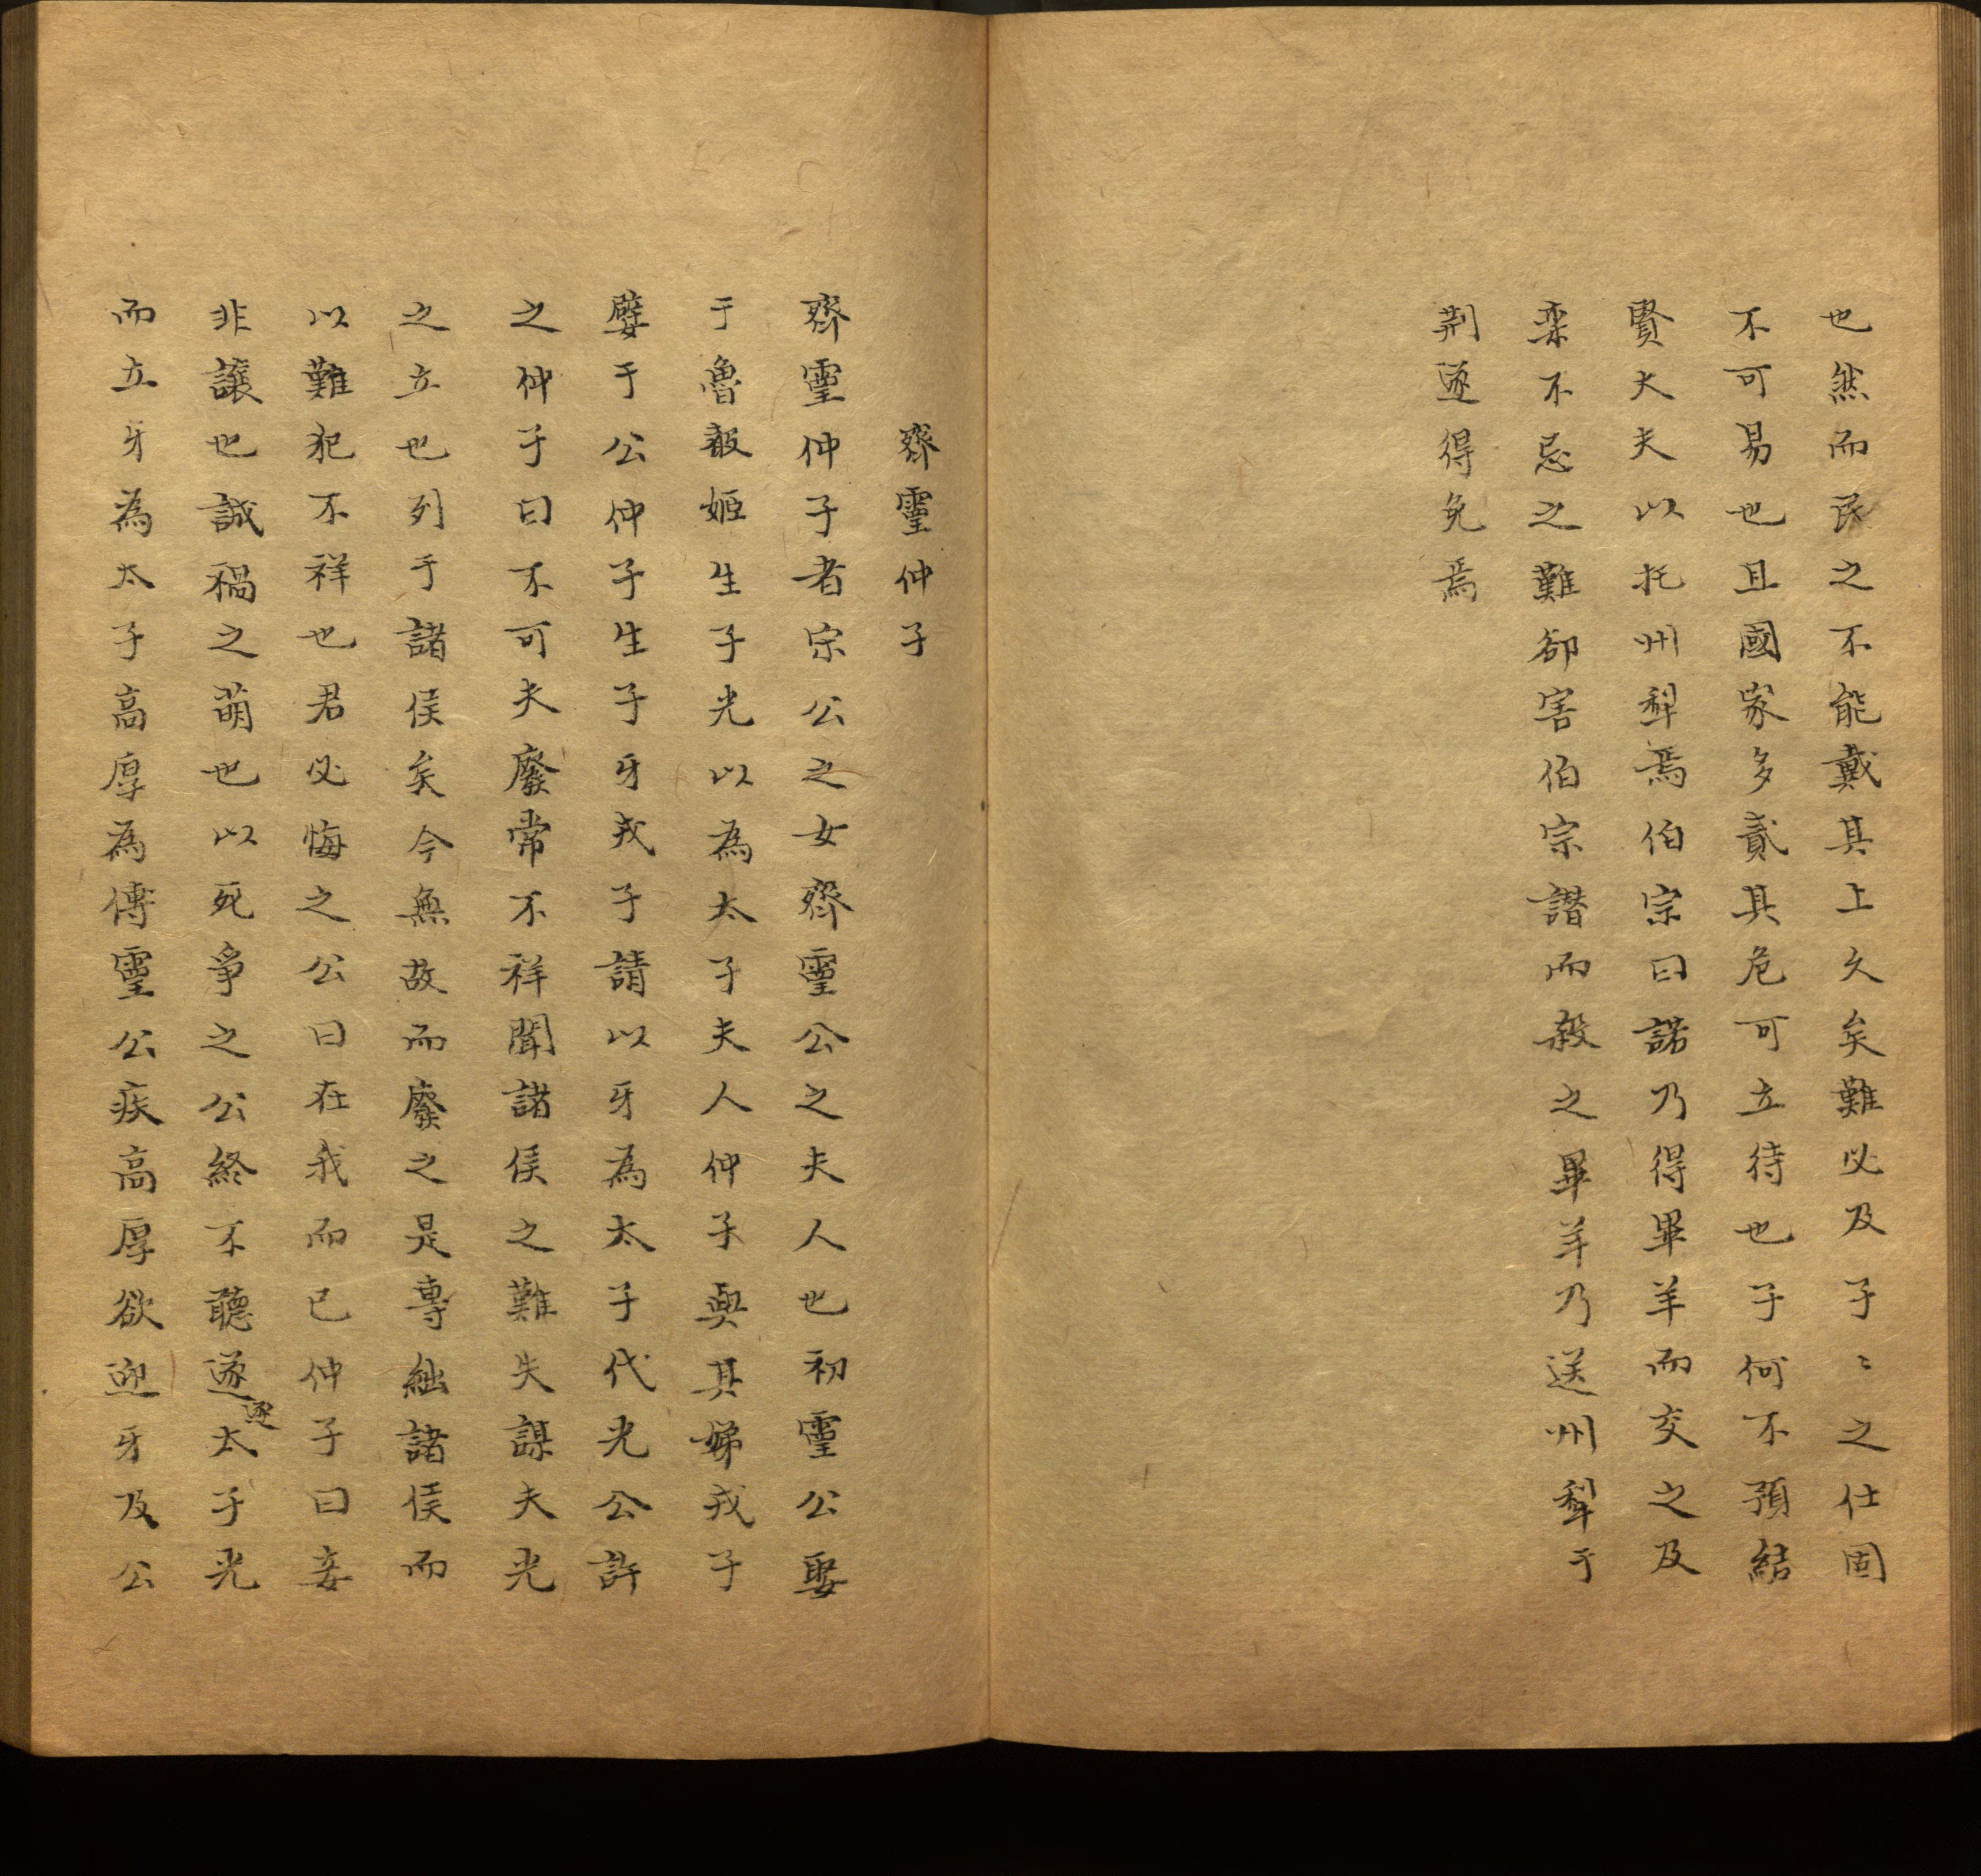 也然而民之不能戴其上久矣難必及子〻之仕固
不可易也且國家多貳其危可立待也子何不預結
賢大夫以托州犁焉伯宗曰諾乃得畢羊而交之及
栾不忌之難郤害伯宗譖而殺之畢羊乃送州犁于
荆遂得免焉
齊靈仲子
齊靈仲子者宗公之女齊靈公之夫人也初靈公娶
于魯聲姬生子光以為太子夫人仲子與其娣戎子
嬖于公仲子生子牙戎子請以牙為太子代光公許
之仲子曰不可夫廢常不祥聞諸侯之難失謀夫光
之立也列于諸侯矣今無故而廢之是專絀諸侯而
以難犯不祥也君必悔之公曰在我而已仲子曰妾
非讓也誠禍之萌也以死爭之公終不聽遂逐太子光
而立牙為太子高厚為傅靈公疾高厚欲迎牙及公